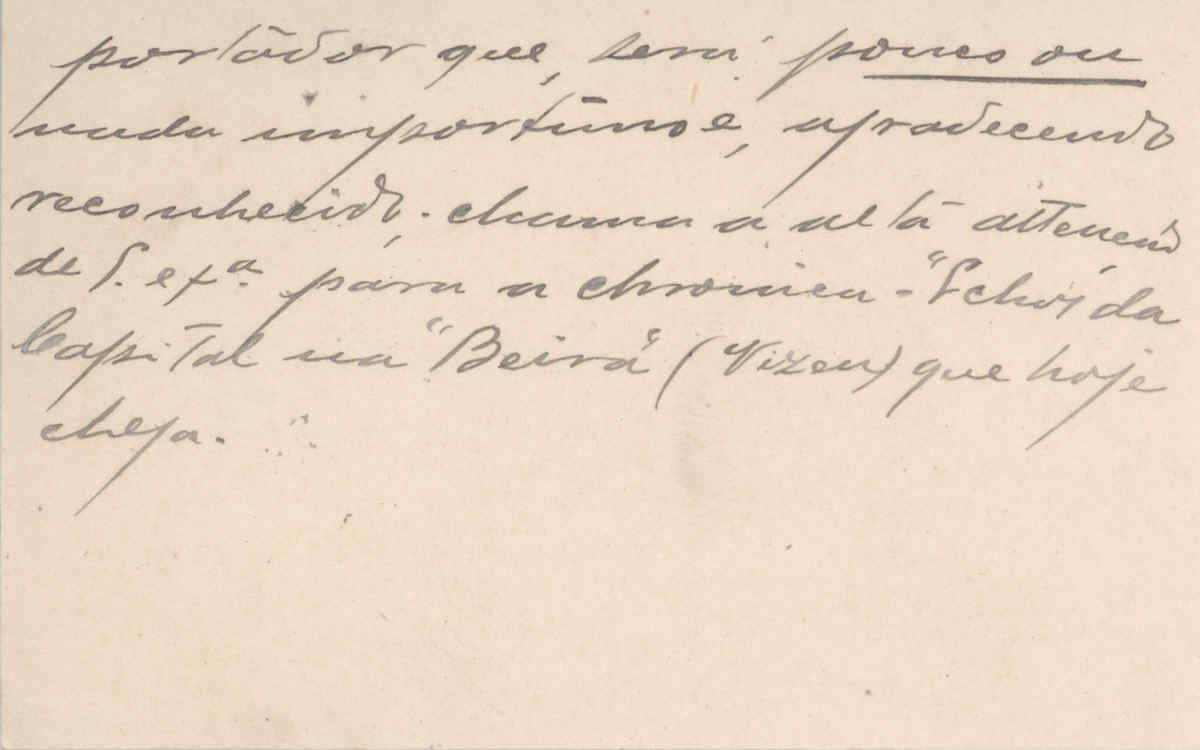 portador que, será pouco ou
nada importuno e, agradecendo
reconhecido, chama a alta attenção
de S. exª. para a chronica - "Echos da
Capital na "Beira" (Vizeu) que hoje
chega.